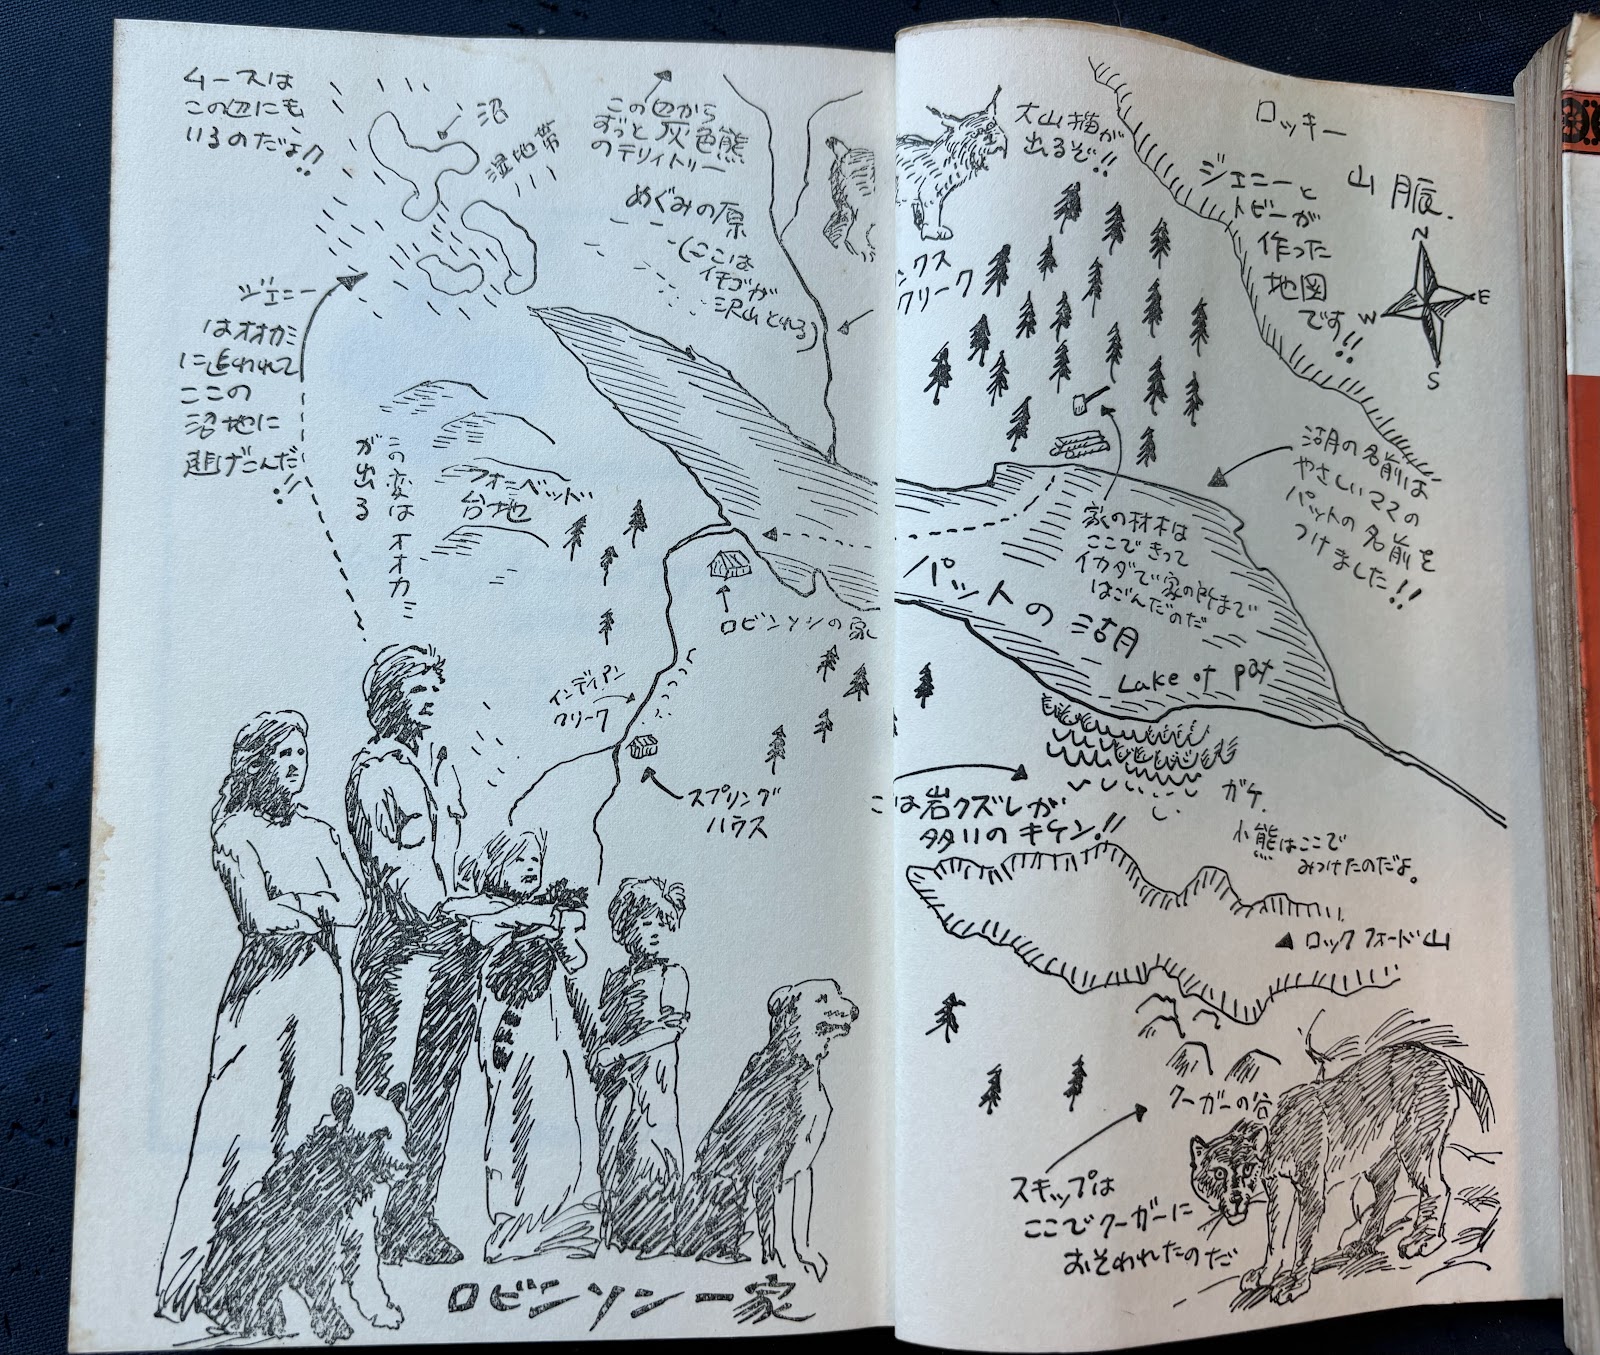 ムースは
この辺にも
いるのだよ!!
沼
湿地帯
この辺から
ずっと灰色熊
のテリィトリー
めぐみの原
(ここは
イチゴが
沢山とれる)
ジェニー
はオオカミ
に追われて
ここの
沼地に
逃げこんだ!!
この変はオオカミ
が出る
フォーベッド
台地
ロビンソンの家
インディアン
クリーク
スプリング
ハウス
ロビンソン一家
大山猫が
出るぞ!!
ンクス
クリーク
ロッキー
山脈.
ジェニーと
トビーが
作った
地図
です!!
N
E
W
S
湖の名前は
やさしいママの
パットの名前を
つけました!!
家の材木は
ここできって
イカダで家の所まで
はごんだのだ
パットの湖
Lake of pat
こは岩クズレが
多川のキケン!!
ガケ.
小熊はここで
みつけたのだよ。
ロックフォード山
クーガーの谷
スキップは
ここでクーガーに
おそわれたのだ